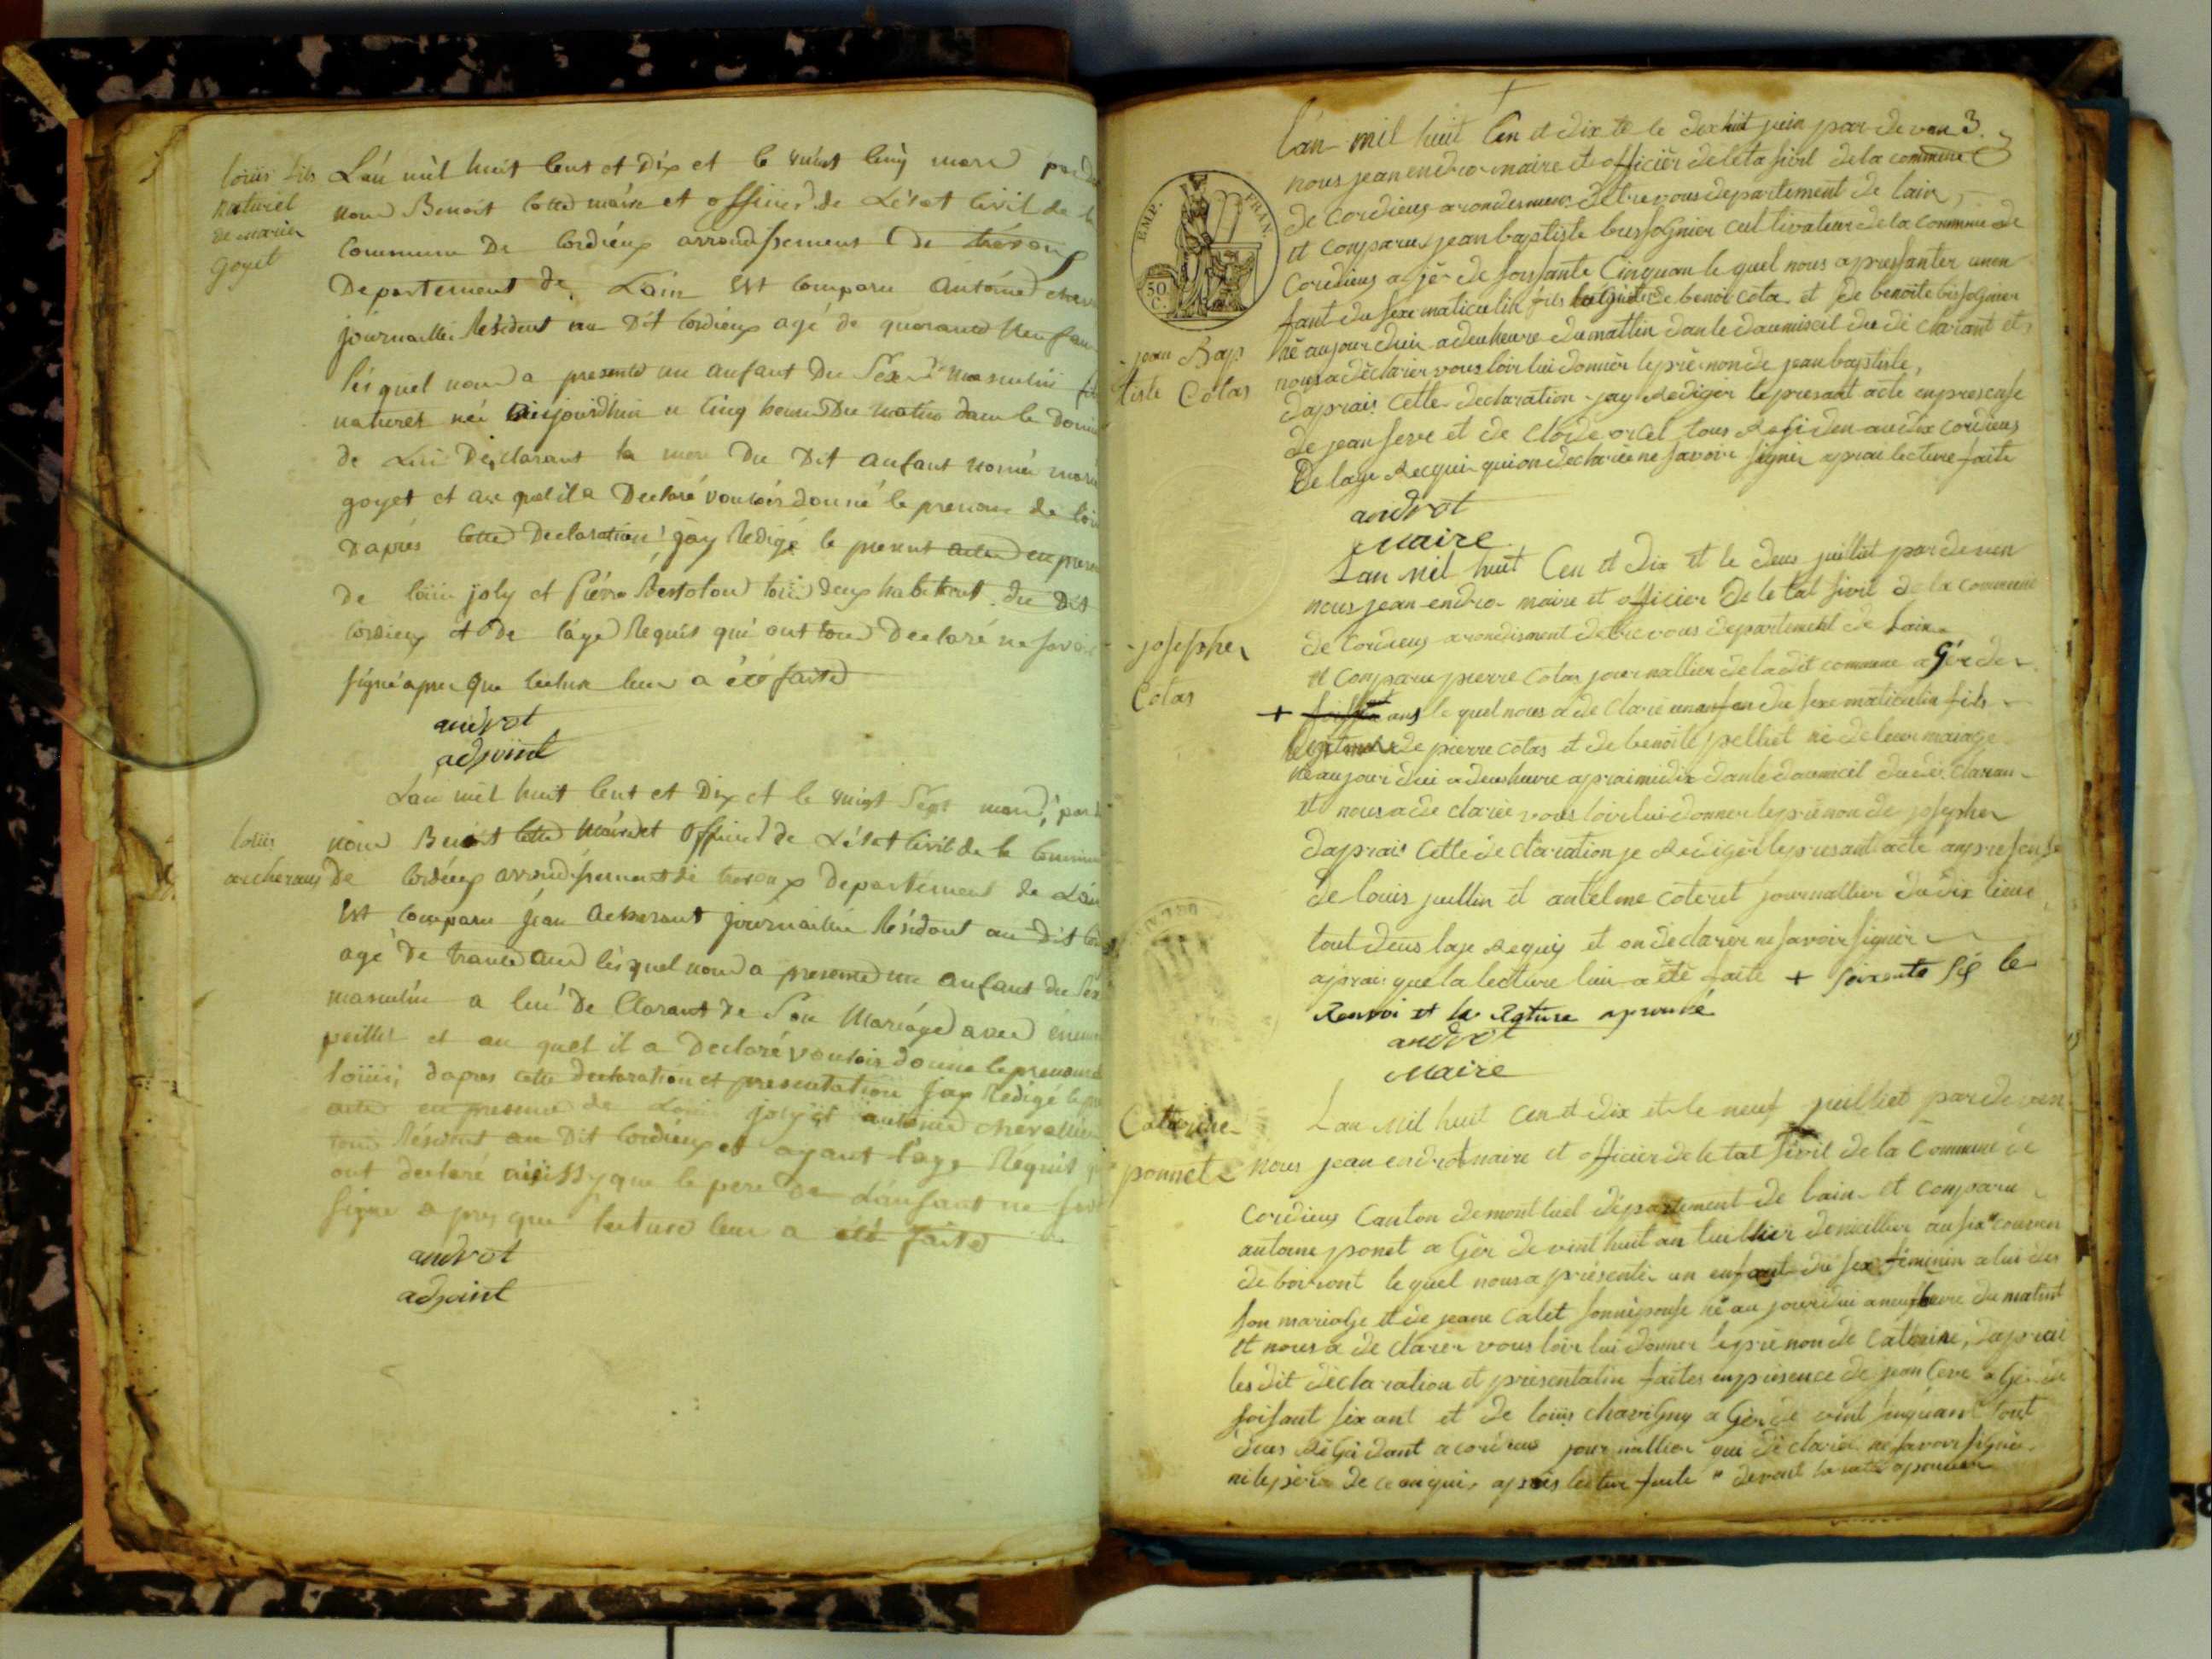 louis fils
naturel
de marie
goyet
L'an mil huit cent et Dix et le vint cinq mars par d
nous Benoit Cotte maire et officier de L'état Civil de la
Commune De Cordieux arrondissement De trévoux
Departement de Lain Est comparu Antoine cheva
journallier Résident au Dit Cordieux agé de quarante neuf an
lesquel nous a presenté un anfant Du Sexe masculin fil
naturel né aujourdhui a cinq heures Du matin dans le Domi
de Lui Déclarant la mere Du Dit anfant nomée marie
goyet et au quel il a Declaré vouloir donné le prenom de loui
Dapres cette Declaration jay Redigé le present acte en presen
de louis joly et Piérre Bertolon tous deux habitant du Dit
Cordieux et De l'âge Requis qui ont tous Declaré ne savoir
signé apres que lecture leur a été faite
androt
adjoint
louis
archeraux
L'an mil huit Cent et Dix et le vingt Sept mars par d
nous Benoit Cotte Maire et officier de L'état Civil de la Commune
De Cordieux arrondissement de trevoux Departement de Lain
Est comparu jean Acherant journallier Résidant au Dit Cor
agé De trante ans lesquel nous a presenté un anfant du Sex
masculin a lui De Clarant de Son Mariage avec
peillet et au quel il a Declaré vouloir donné le prenom d
louis, dapres cette declaration et presentation jay Redigé le pre
acte en presence de Louis joly et antoine chevallier
tous Résidant au Dit Cordieux et ayant l'age Requis q
ont declaré aussy que le pere De L'anfant ne sav
signe apres que lecture leur a été faite
androt
adjoint
3
L'an mil huit Cen et dix et le dix huit juin par de van
nous jean endro maire et officier de leta sivil de la commune
de Cordieux arondisment de trevous departement de lain
et comparu jean baptiste bressognier cultivateur de la commune de
Cordieux a jér de soissante Cinquan le quel nous a pressanter unen
fant du sexe maticulin fils de benoi cota et de benoite bissognier
né aujourduie a deu heure du mattin dan le daumisiel du di clarant et
nous a déclarer vous loir lui donnér le prénon de jean baptiste,
EMP. FRAN.
50 C.
jean Bap
tiste Colas
daprais Cette declaration jay Rediger le presant acte en presense
de jean serve et de Clode orcel tous Residen audix cordieux
De lage Requi qui on declarée ne savoir signér aprai lecture faite
androt
Maire
L'an mil huit Cen et Dix et le deus juillet par de ven
nous jean endro maire et officier De le tat sivil de la commune
de Cordieux arondisment de trevous departement de Lain
josepher
Colas
et comparu pierre Colas journallier de la dit commune a Gér de
+ ans le quel nous a de Claré unanfan du sexe maticulin fils
legitime de pierre cotas et de benoite pelliet né de leur mariage
né aujour dui a deu heure aprai midix dan le daumicil du dé Claran
et nous a de clarée vous loir lui donner le prénon de josepher
daprais Cette de claration je Rediger le presant acte anpresense
de louis juillin et antelme coteret journallier du dix lieue
tout deus lage Requis et on declarér ne savoir signér
aprai que la lecture lui a été faite + soixante six le
Renvoi et la Rature aprouvé
androt
Maire
Caterine
ponnet
L'an Mil huit Cen et dix et le neuf juilliet par de ven
nous jean endrot maire et officier de le tat sivil de la Commune de
Cordieux Canton de mont luel département de lain et comparu
antoine ponet a Gér de vint huit an tuillier
de boiront le quel nous a présenté un enfant du sex féminin a lui des
son mariage et de jeane Calet sonnépouse né au jourdui a neuf heure du matint
et nous a de clarer vous loir lui donner le prénon de Caterine, daprai
les dit déclaration et présentatin faites en présence de jean serve a Gér de
soisant six ant et de louis chavigny a Gér de vint sinquant tout
deus Résidant a cordieus journallier qui declarer ne savoir signér
ni le pére de ce enquis, aprais lecture faite